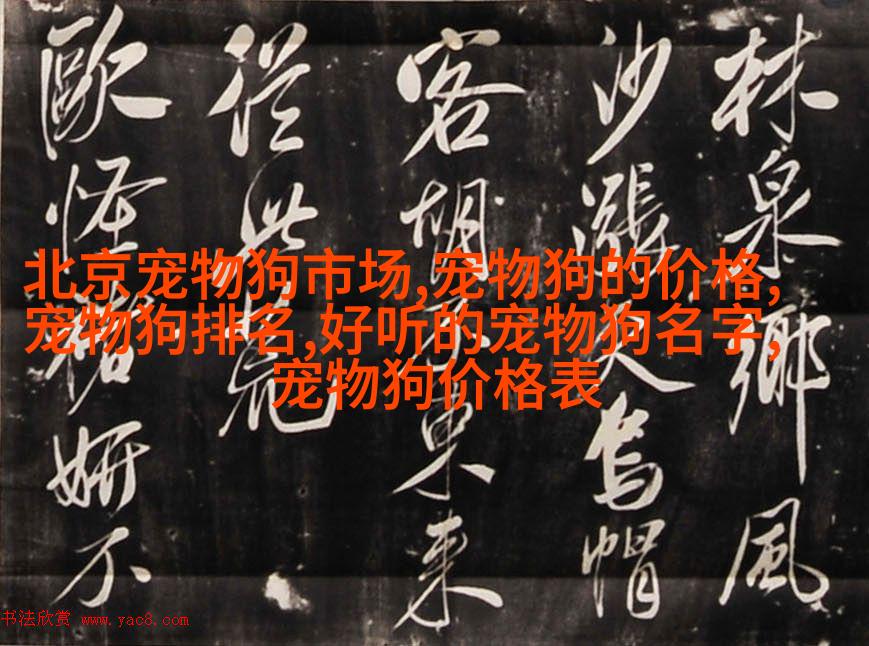 北京宠物狗市场,宠物狗的价格,
宠物狗排名,好听的宠物狗名字,
宠物狗价格表
林泉鄉風
沙漲烏帽
客胡東來
從此
歐怪褚妍不
书法欣赏 www.yac8.com